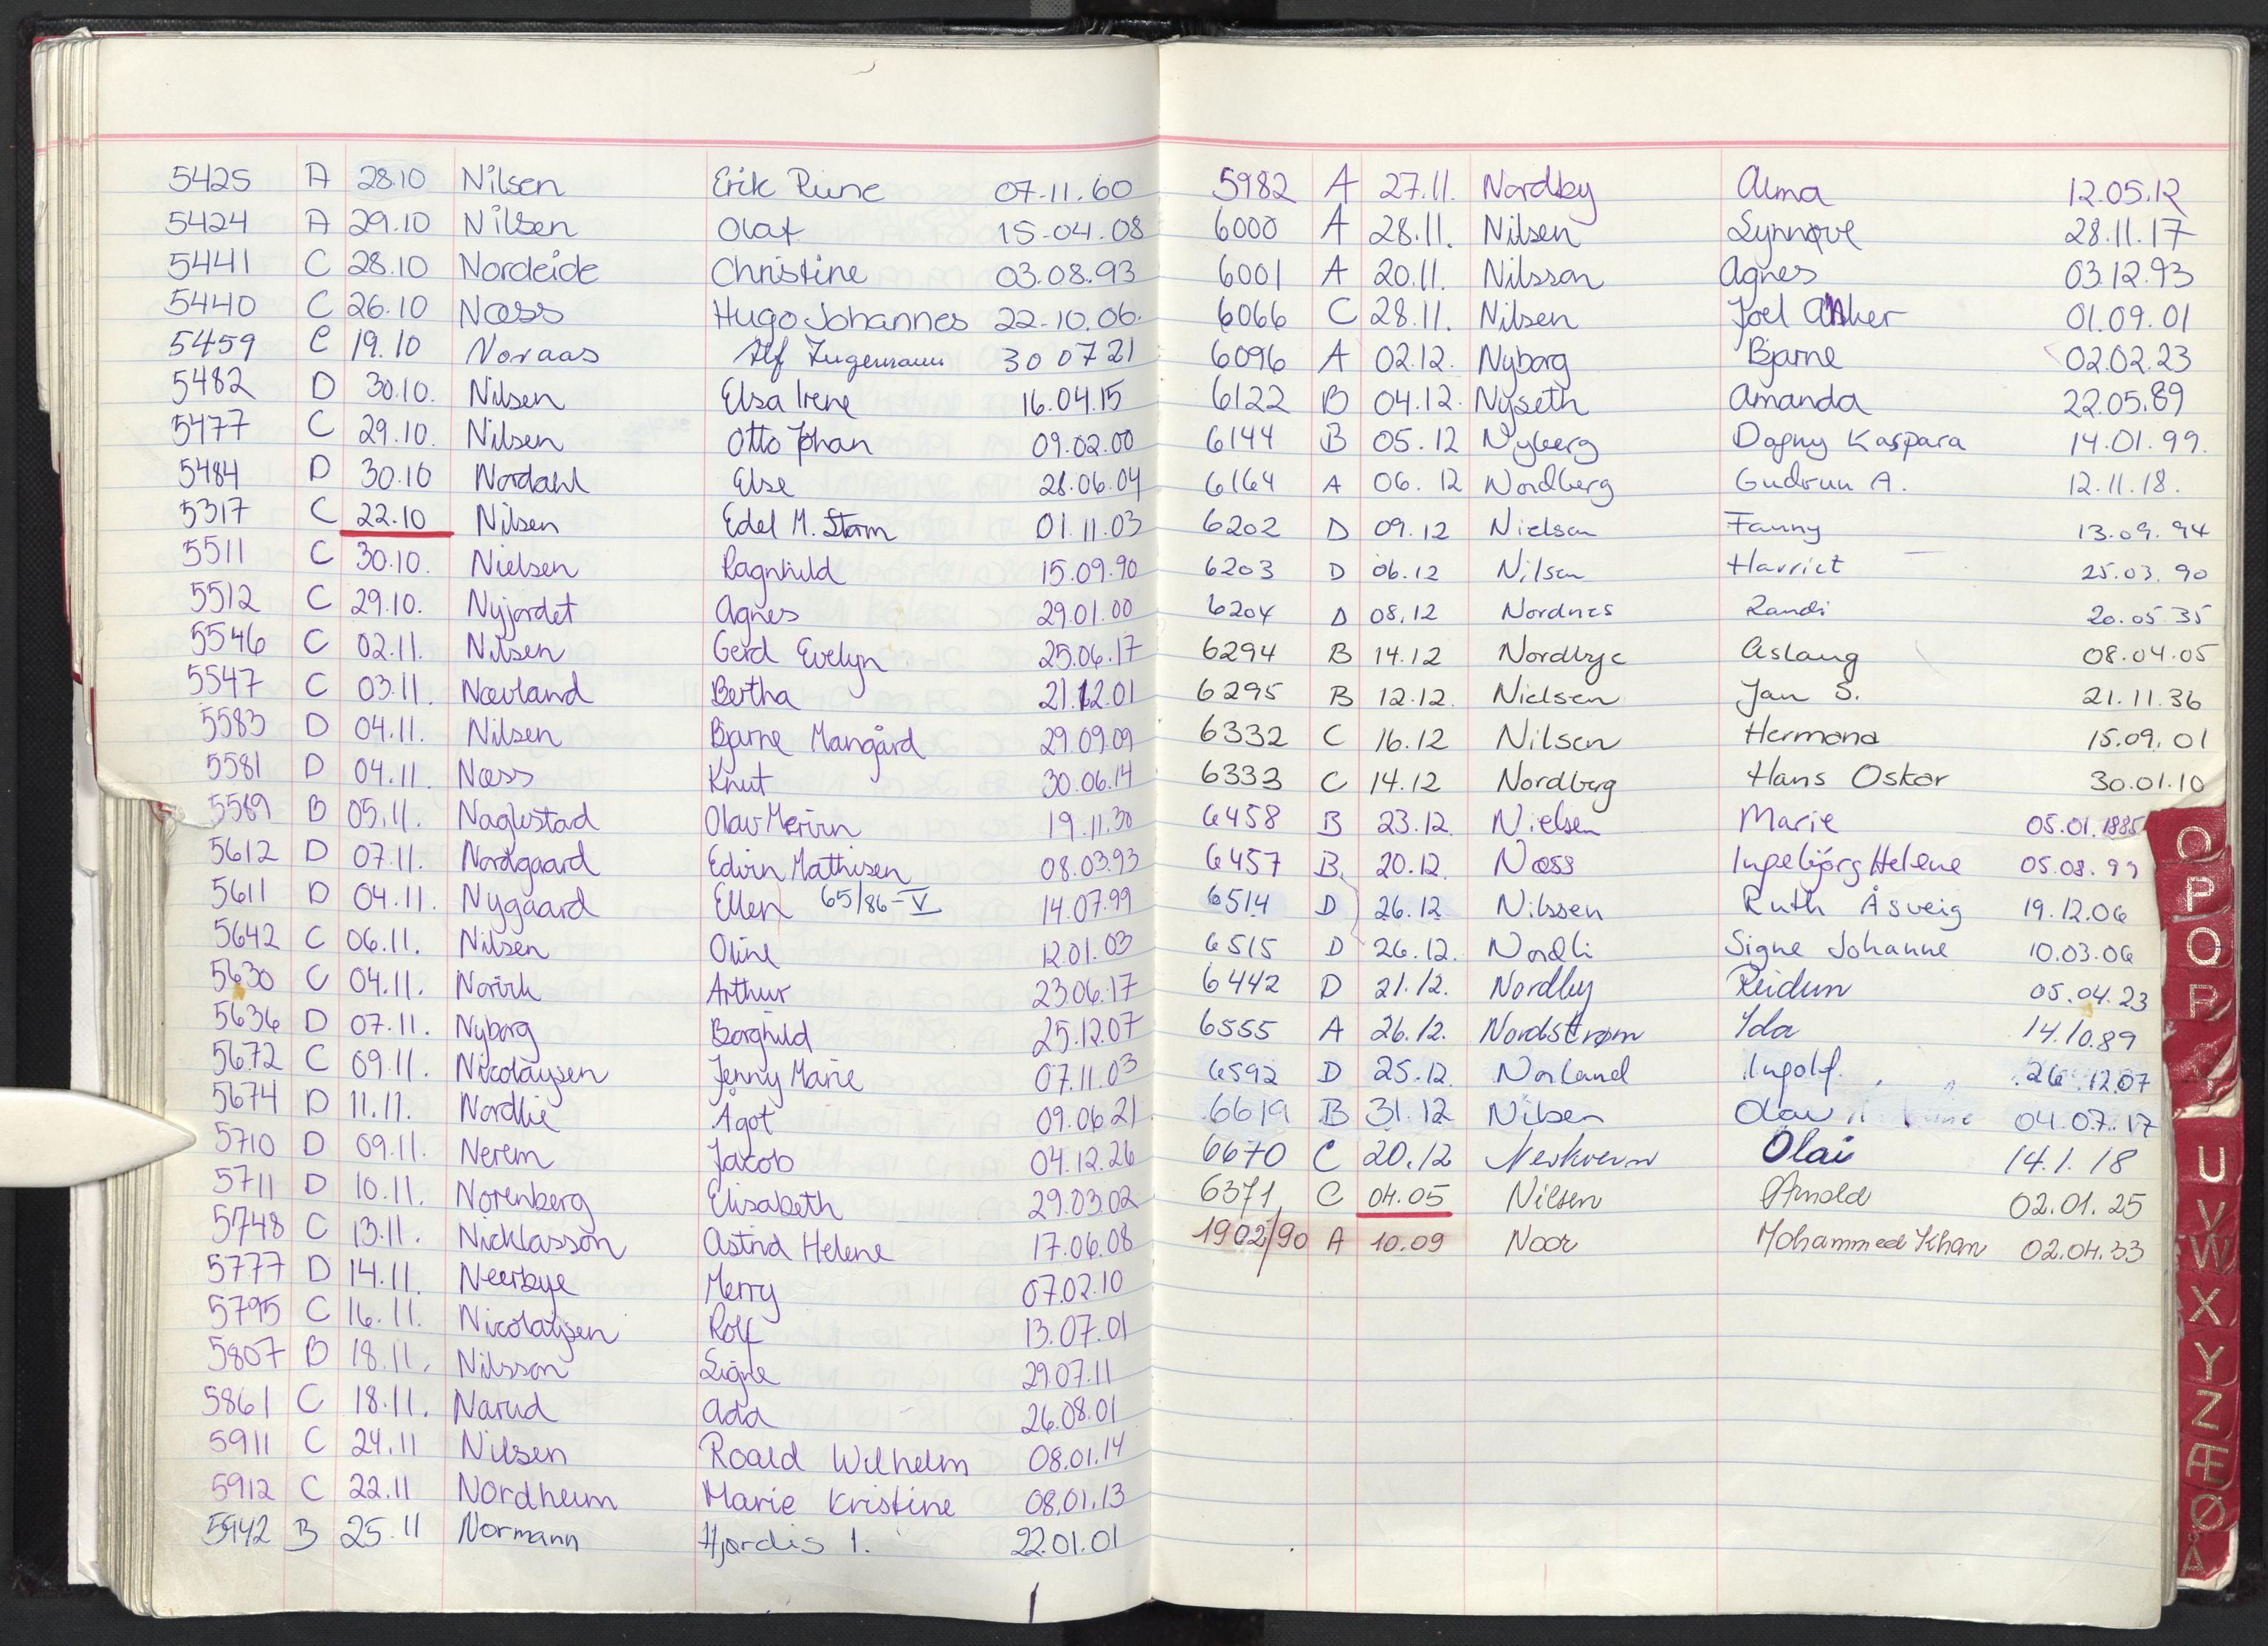 5425 A 28.10 Nilsen Erik Rune 07.11.60
5424 A 29.10 Nilsen Olaf 15.04.08
5441 C 28.10 Nordeide Christine 03.08.93
5440 C 26.10 Næss Hugo Johannes 22.10.06.
5459 C 19.10 Noraas Alf Ingemann 30 07 21
5482 D 30.10. Nilsen Elsa Irene 16.04.15
5477 C 29.10. Nilsen Otto Johan 09.02.00
5484 D 30.10 Nordahl Else 28.06.04
5317 C 22.10 Nilsen Edel M. Storm 01.11.03
5511 C 30.10. Nielsen Ragnhild 15.09.90
5512 C 29.10. Nyjordet Agnes 29.01.00
5546 C 02.11. Nilsen Gerd Evelyn 25.06.17
5547 C 03.11. Nævland Bertha 21.12.01
5583 D 04.11. Nilsen Bjarne Mangård 29.09.09
5581 D 04.11. Næss Knut 30.06.14
5589 B 05.11. Naglestad Olav Mervin 19.11.30
5612 D 07.11. Nordgaard Edvin Mathisen 08.03.93
5611 D 04.11. Nygaard Ellen 65/86-V 14.07.99
5642 C 06.11. Nilsen Oline 12.01.03
5630 C 04.11. Narvik Arthur 23.06.17
5636 D 07.11. Nyborg Borghild 25.12.07
5672 C 09.11. Nicolaysen Jenny Marie 07.11.03
5674 D 11.11. Nordlie Ågot 09.06.21
5710 D 09.11. Nerem Jacob 04.12.26
5711 D 10.11. Norenberg Elisabeth 29.03.02
5748 C 13.11. Nicklasson Astrid Helene 17.06.08
5777 D 14.11. Neerbye Merry 07.02.10
5795 C 16.11. Nicolaysen Rolf 13.07.01
5807 B 18.11. Nilsson Signe 29.07.11
5861 C 18.11. Narud Ada 26.08.01
5911 C 24.11 Nilsen Roald Wilhelm 08.01.14
5912 C 22.11 Nordheim Marie Kristine 08.01.13
5942 B 25.11 Normann Hjørdis I. 22.01.01
5982 A 27.11. Nordby Alma 12.05.12
6000 A 28.11. Nilsen Synnøve 28.11.17
6001 A 20.11. Nilsson Agnes 03.12.93
6066 C 28.11. Nilsen Joel Anker 01.09.01
6096 A 02.12. Nyborg Bjarne 02.02.23
6122 B 04.12. Nyseth Amanda 22.05.89
6144 B 05.12 Nyberg Dagny Kaspara 14.01.99.
6164 A 06.12 Nordberg Gudrun A. 12.11.18.
6202 D 09.12 Nielsen Fanny 13.09.94
6203 D 06.12 Nilsen Harriet 25.03.90
6204 D 08.12 Nordnes Randi 20.05.35
6294 B 14.12 Nordbye Aslaug 08.04.05
6295 B 12.12. Nielsen Jan S. 21.11.36
6332 C 16.12 Nilsen Hermana 15.09.01
6333 C 14.12 Nordberg Hans Oskar 30.01.10
6458 B 23.12. Nielsen Marie 05.01.1885
6457 B 20.12. Næss Ingebjørg Helene 05.08.99
6514 D 26.12. Nilssen Ruth Åsveig 19.12.06
6515 D 26.12. Nordli Signe Johanne 10.03.06
6442 D 21.12. Nordby Reidun 05.04.23
6555 A 26.12. Nordstrøm Ida 14.10.89
6592 D 25.12. Norland Ingolf. 26.12.07
6619 B 31.12 Nilsen Olav 04.07.17
6670 C 20.12 Olai 14.1.18
6371 C 04.05 Nilsen Arnold 02.01.25
1902/90 A 10.09 Noor Mohammed Khan 02.04.33
O
P
O
P
U
V
W
X
Y
Z
Æ
Ø
Å